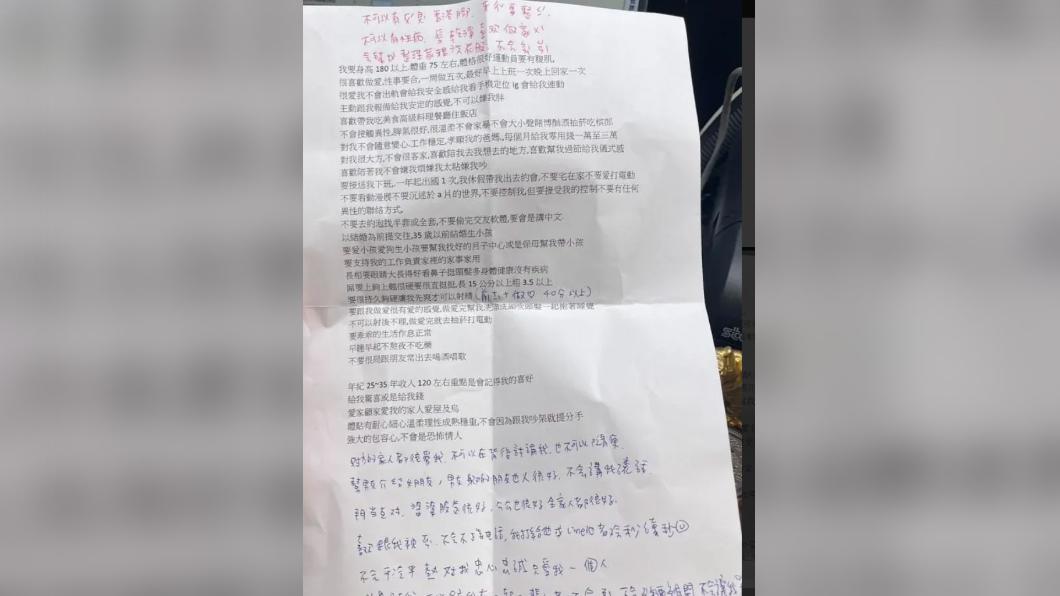 不可以有
不可以有性病
我要身高180以上.體重75左右,體格很好運動員要有腹肌,
很喜歡做愛,性事要合,一周做五次,最好早上上班一次晚上回家一次
很愛我不會出軌會給我安全感給我看手機定位 ig 會給我連動
主動跟我報備給我安定的感覺,不可以嫌我胖
喜歡帶我吃美食高級料理餐廳住飯店
不會接觸異性,脾氣很好,很溫柔不會家暴不會大小聲賭博酗酒抽菸吃檳榔
對我不會隨意變心.工作穩定,孝順我的爸媽,,每個月給我零用錢一萬至三萬
對我很大方,不會很客家,喜歡陪我去我想去的地方,喜歡幫我過節給我儀式感
喜歡陪著我不會嫌我煩嫌我太黏嫌我吵
要接送我下班,.一年起出國1次,我休假帶我出去約會,不要宅在家不要愛打電動
不要看動漫展不要沉迷於 a 片的世界,不要控制我,但要接受我的控制不要有任何
異性的聯絡方式,
不要去約泡找半套或全套,不要偷完交友軟體,要會是講中文
以結婚為前提交往,35 歲以前結婚生小孩
要愛小孩愛狗生小孩要幫我找好的月子中心或是保母幫我帶小孩
要支持我的工作負責家裡的家事家用
長相要眼睛大長得好看鼻子挺頭髮多身體健康沒有疾病
要上夠上翹很硬要很直挺挺,長 15 公分以上粗 3.5 以上
要很持久夠硬讓我先爽才可以射精 40分以上)
要跟我做愛很有愛的感覺,做愛完幫我洗
不可以射後不理,做愛完就去抽菸打電動
要乖乖的生活作息正常
早睡早起不熬夜不吃藥
不要很局跟朋友常出去喝酒唱歌
年紀 25~35 年收入 120 左右重點是會記得我的喜好
給我驚喜或是給我錢
愛家顧家愛我的家人愛屋及烏
體貼有耐心細心溫柔理性成熟穩重,不會因為跟我吵架就提分手
強大的包容心,不會是恐怖情人
對方的家人都很愛我.不可以在背後討論我.也不可以
介紹好朋友,男女 的朋友也人很好.不會講我壞話
門當戶對. 婆婆 很好.公公也很好 全家人都很好.
喜歡跟我 .不會不 電話,我打給他或Line他 秒 秒
不會 冷 熱 對我忠心 誠 只愛我一個人